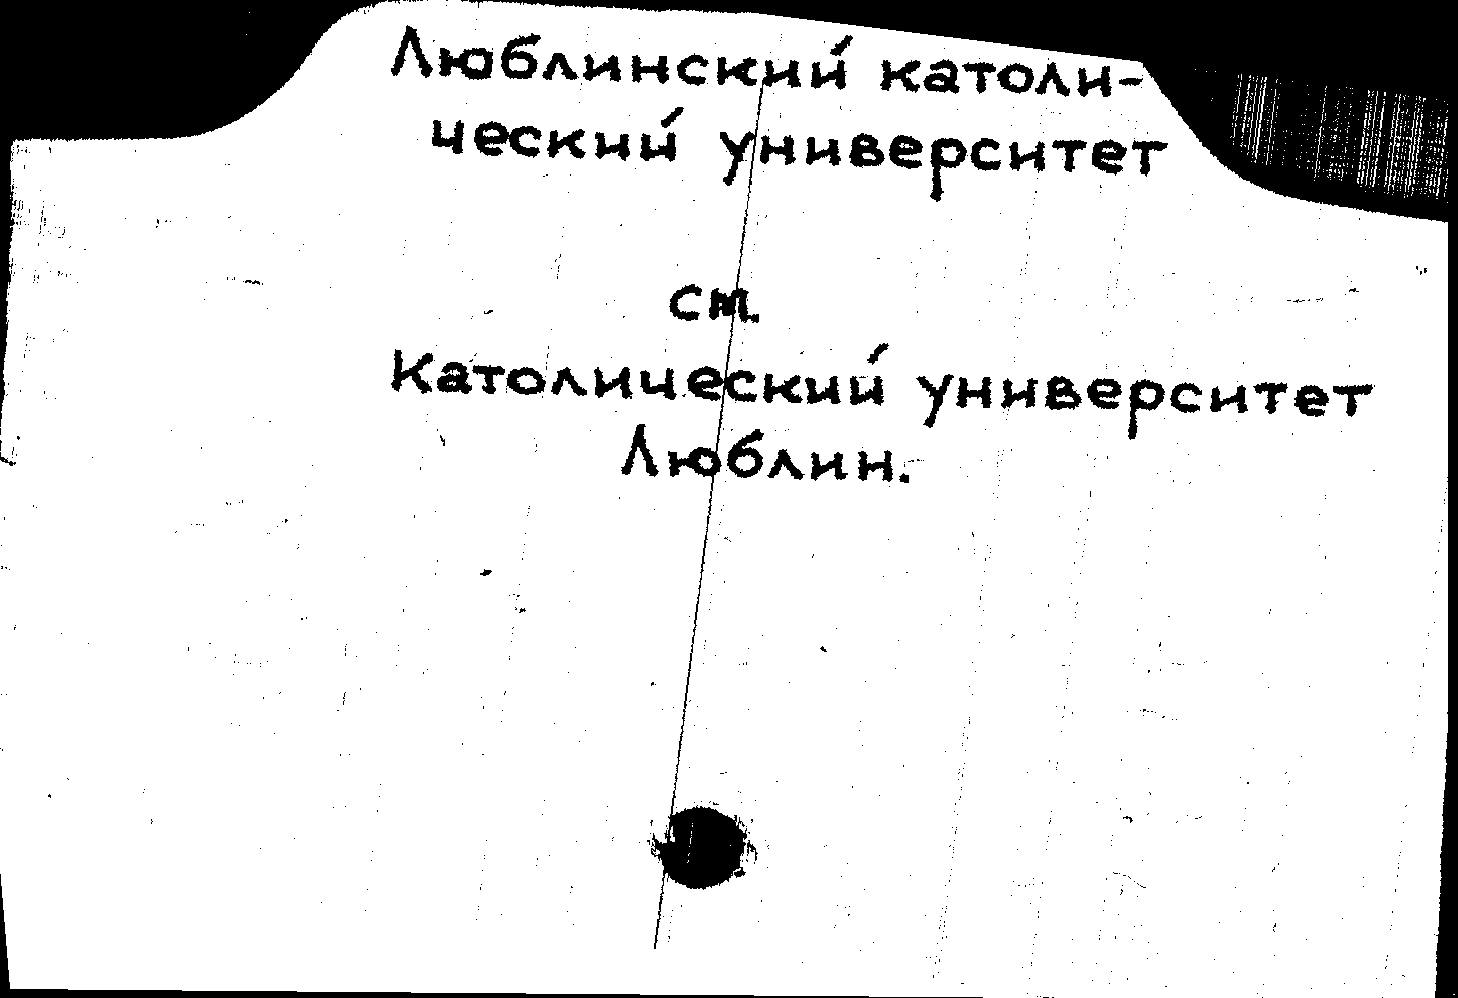 Люблинский католи-
ческий университет
см.
Католический университет
Люблин.